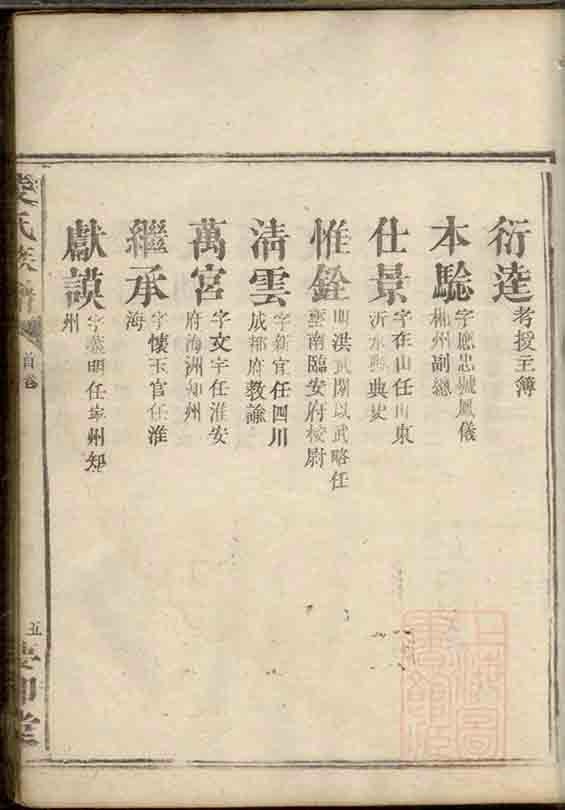 衍達 考授主簿
本驄 字應忠號鳳儀
州副總
仕景 字在山任山東
沂水縣典史
惟銓 明洪武間以武略任
雲南臨安府校尉
清雲 字新官任四川
成都府教諭
萬宮 字文宇任淮安
府海洲知州
繼承 字懷玉官任淮
海
獻謨 字 明任 州知
州
氏族譜
首卷
五
堂
上海圖書館